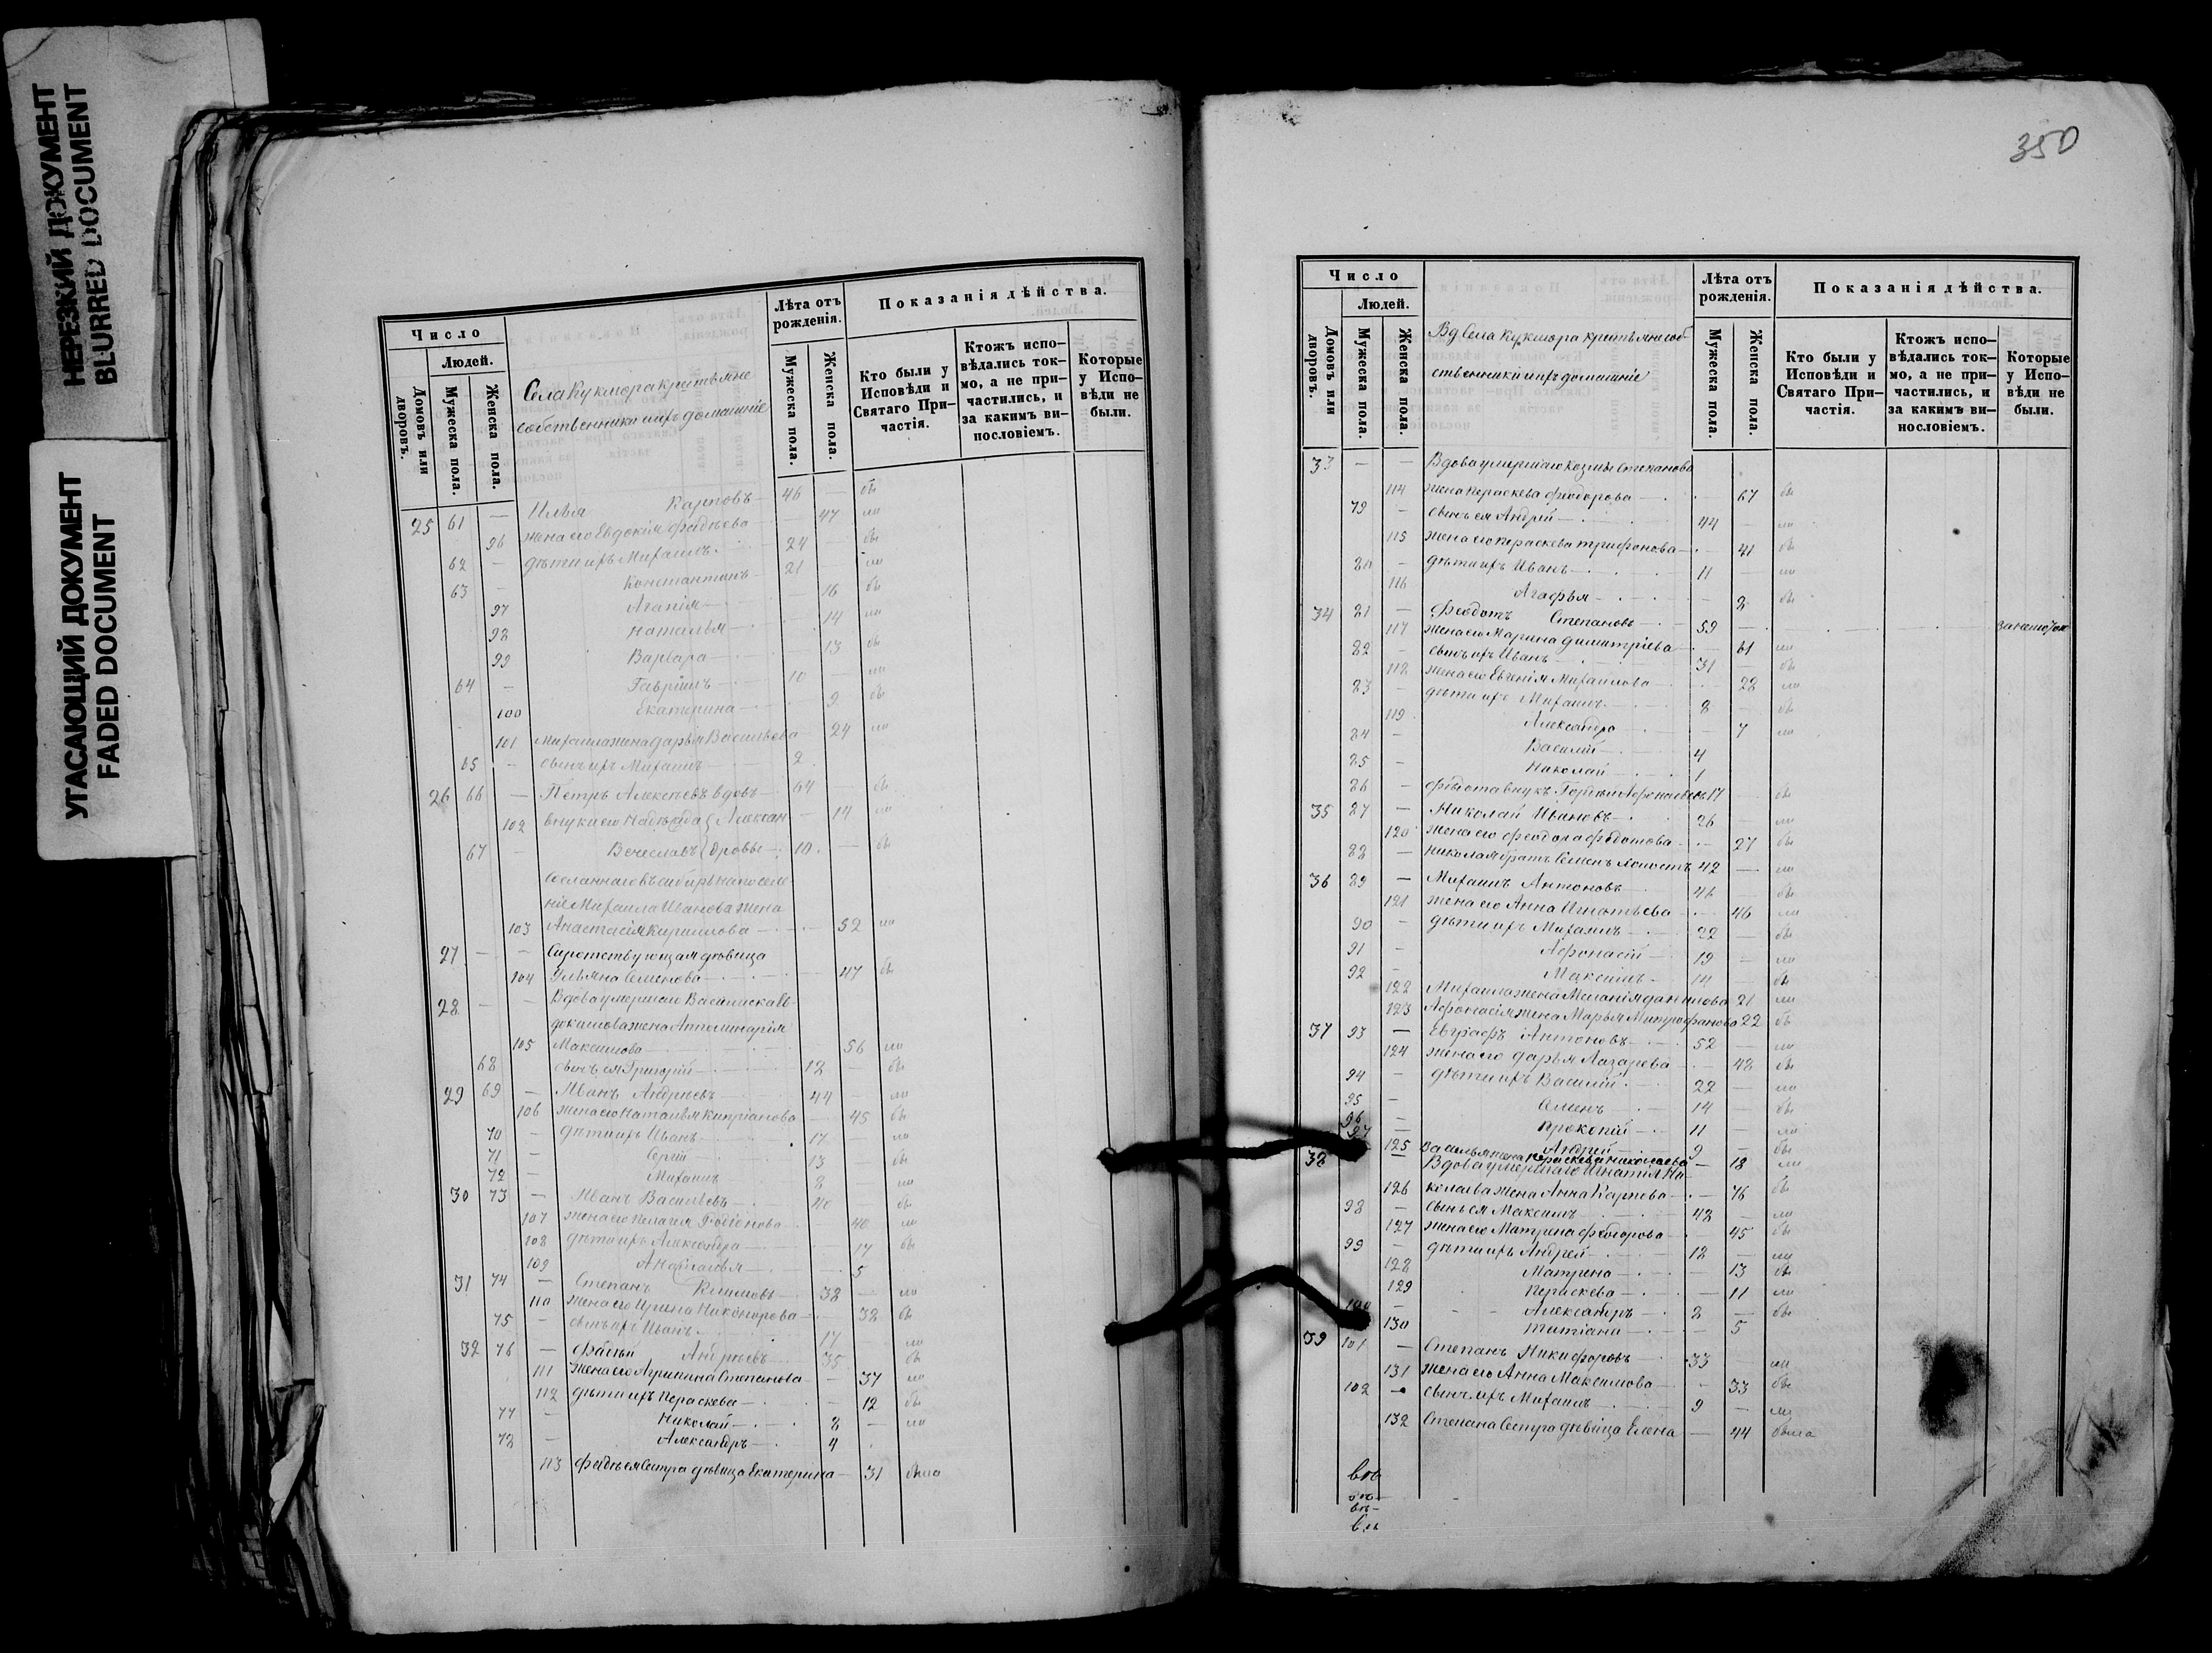 НЕРЕЗКИЙ ДОКУМЕНТ
BLURRED DOCUMENT
УГАСАЮЩИЙ ДОКУМЕНТ
FADED DOCUMENT
Число
Людей.
Домовъ или дворовъ.
Мужеска пола.
Женска пола.
Села Кукмора крестьяне
собственники и ихъ домашніе
Лѣта отъ рожденія.
Мужеска пола.
Женска пола.
Показанія дѣйства.
Кто были у Исповѣди и Святаго Причастія.
Ктожъ исповѣдались токмо, а не причастились, и за какимъ винословіемъ.
Которые у Исповѣди не были.
25 61 — Илья Карповъ 46 — бы
96 жена его Евдокія Фадѣева — 47 ли
62 — дѣти ихъ Михаилъ 24 — бы
63 — Константинъ 21 — ли
97 Агапія 16 бы
98 Наталья 14 ли
99 Варвара 13 бы
64 — Гавріилъ 10 — ли
100 Екатерина 9 бы
101 Михаила жена Дарья Васильева 24 ли
65 — сынъ ихъ Михаилъ 2
26 66 — Петръ Алексѣевъ вдовъ 64 — бы
102 внуки его Надежда Алексан — 14 ли
67 — Вечеславъ дровы 10 — бы
Сосланнаго въ сибирь на поселе-
ніе Михаила Иванова жена
103 Анастасія Кириллова 52 ли
27 — — Сиротствующая дѣвица
104 Ульяна Семенова 47 бы
28 — — Вдова умершаго Василиска Ев-
докимова жена Апполинарія
105 Максимова 56 ли
68 сынъ ея Григорій 12 — бы
29 69 — Иванъ Андреевъ 44 — ли
106 жена его Наталья Кипріанова 45 бы
70 — дѣти ихъ Иванъ 17 ли
71 — Сергій 13 бы
72 — Михаилъ 8 — ли
30 73 — Иванъ Васильевъ 40 бы
107 жена его Пелагія Родіонова 40 ли
108 дѣти ихъ Александра 17 бы
109 5
31 74 — Степанъ Климовъ 38 — ли
110 жена его Ирина Никонорова 38 бы
75 — сынъ ихъ Иванъ 17 ли
32 76 — Фадѣй Андреевъ 35 бы
111 жена его Агрипина Степанова — 37 ли
112 дѣти ихъ Параскева — 12 бы
77 — Николай 8 — ли
78 — Александръ 4
113 Фадѣя сестра дѣвица Екатерина — 31 была
350
Число
Людей.
Домовъ или дворовъ.
Мужеска пола.
Женска пола.
Вд. Села Кукмора крестьяне соб-
ственники и ихъ домашніе
Лѣта отъ рожденія.
Мужеска пола.
Женска пола.
Показанія дѣйства.
Кто были у Исповѣди и Святаго Причастія.
Ктожъ исповѣдались токмо, а не причастились, и за какимъ винословіемъ.
Которые у Исповѣди не были.
33 — — Вдова умершаго Козмы Степанова
114 жена Параскева Феодорова — 67 бы
79 — сынъ ея Андрей 44 — ли
115 жена его Параскева Трифонова — 41 бы
80 — дѣти ихъ Иванъ 11 — ли
116 Агафья — 8 бы
34 81 — Феодотъ Степановъ 59 —
117 жена его Марина Димитріева — 61 ли
82 — сынъ ихъ Иванъ 31 — бы
118 жена его Евгенія Михаилова 28 ли
83 — дѣти ихъ Михаилъ 8 — бы
119 Александра 7 ли
84 — Василій 4
85 — Николай 1
86 — Федота внукъ Гордей 17 бы
35 87 — Николай Ивановъ 26 — ли
120 жена его Феодора Федотова — 27 бы
88 — Николая братъ Семенъ холостъ 42 — ли
36 89 — Михаилъ Антоновъ 46 — бы
121 жена его Анна Игнатьева — 46 ли
90 — дѣти ихъ Михаилъ 22 — бы
91 — Афонасій 19 — ли
92 — Максимъ 14 — бы
122 Михаила жена Меланія Данилова 21 ли
123 Афонасія жена Марья Митрофанова 22 бы
37 93 — Евграфъ Антоновъ 52 — ли
124 жена его Дарья Лазарева — 48 бы
94 — дѣти ихъ Василій 22 — ли
95 — Семенъ 14 — бы
96 — Прокопій 11 — ли
97 Андрей 9 — бы
125 Василья жена Параскева Николаева — 18 ли
38 — Вдова умершаго Игнатія Ни-
126 колаева жена Анна Карпова — 76 бы
98 — сынъ ея Максимъ 48 — ли
127 жена его Матрена Феодорова — 45 бы
99 — дѣти ихъ Андрей 18 — ли
128 Матрена — 13 бы
129 Параскева — 11 ли
100 — Александръ 8 — бы
130 Татіана — 5
39 101 — Степанъ Никифоровъ 33 ли
131 жена его Анна Максимова — 33 бы
102 — сынъ ихъ Михаилъ 9 — ли
132 Степана сестра дѣвица Елена — 44 была